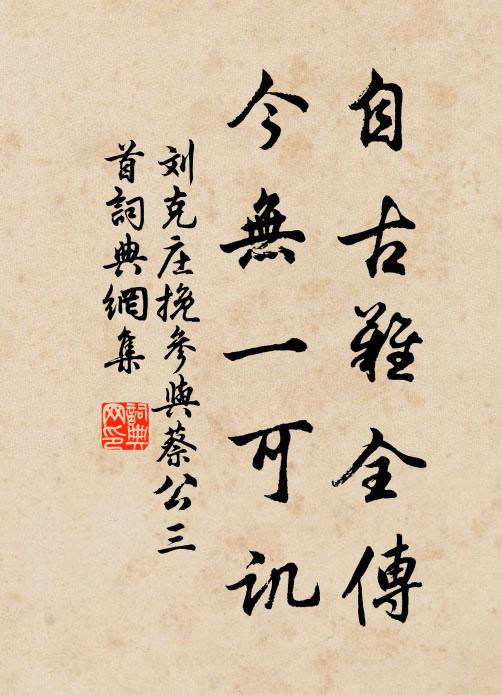 自古難全傳
今無一可訊
刘克庄挽參與蔡公三
首詞典網集
詞典
网印